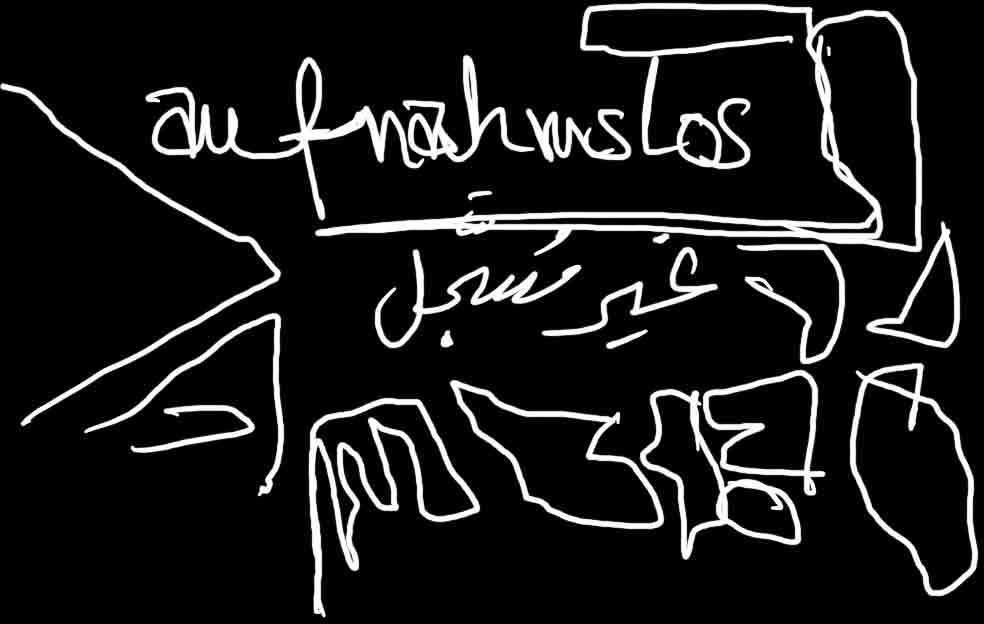 aufnahmslos
غير مسجل